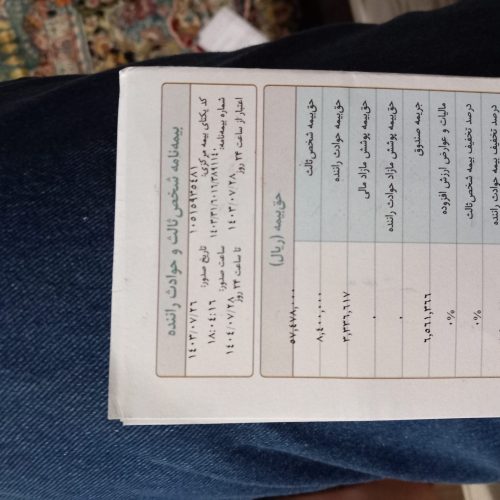 بیمه‌نامه شخص ثالث و حوادث راننده
کد یکتای بیمه مرکزی: ۱۰۵۱۵۹۳۵۴۸۱ تاریخ صدور: ۱۴۰۳/۰۷/۲۶
شماره بیمه‌نامه: ساعت صدور: ۱۸:۰۴:۱۶
اعتبار از ساعت ۲۴ روز ۱۴۰۳/۰۷/۲۸ تا ساعت ۲۴ روز ۱۴۰۴/۰۷/۲۸
حق‌بیمه (ریال)
حق‌بیمه شخص ثالث ۵۷,۴۷۸,۰۰۰
حق‌بیمه حوادث راننده ۸,۴۰۰,۰۰۰
حق‌بیمه پوشش مازاد مالی ۳,۳۳۶,۶۱۷
حق‌بیمه پوشش مازاد حوادث راننده ۰
جریمه صندوق ۰
مالیات و عوارض ارزش افزوده ۶,۵۶۱,۳۶۶
درصد تخفیف بیمه شخص ثالث ۰%
درصد تخفیف بیمه حوادث راننده ۰%